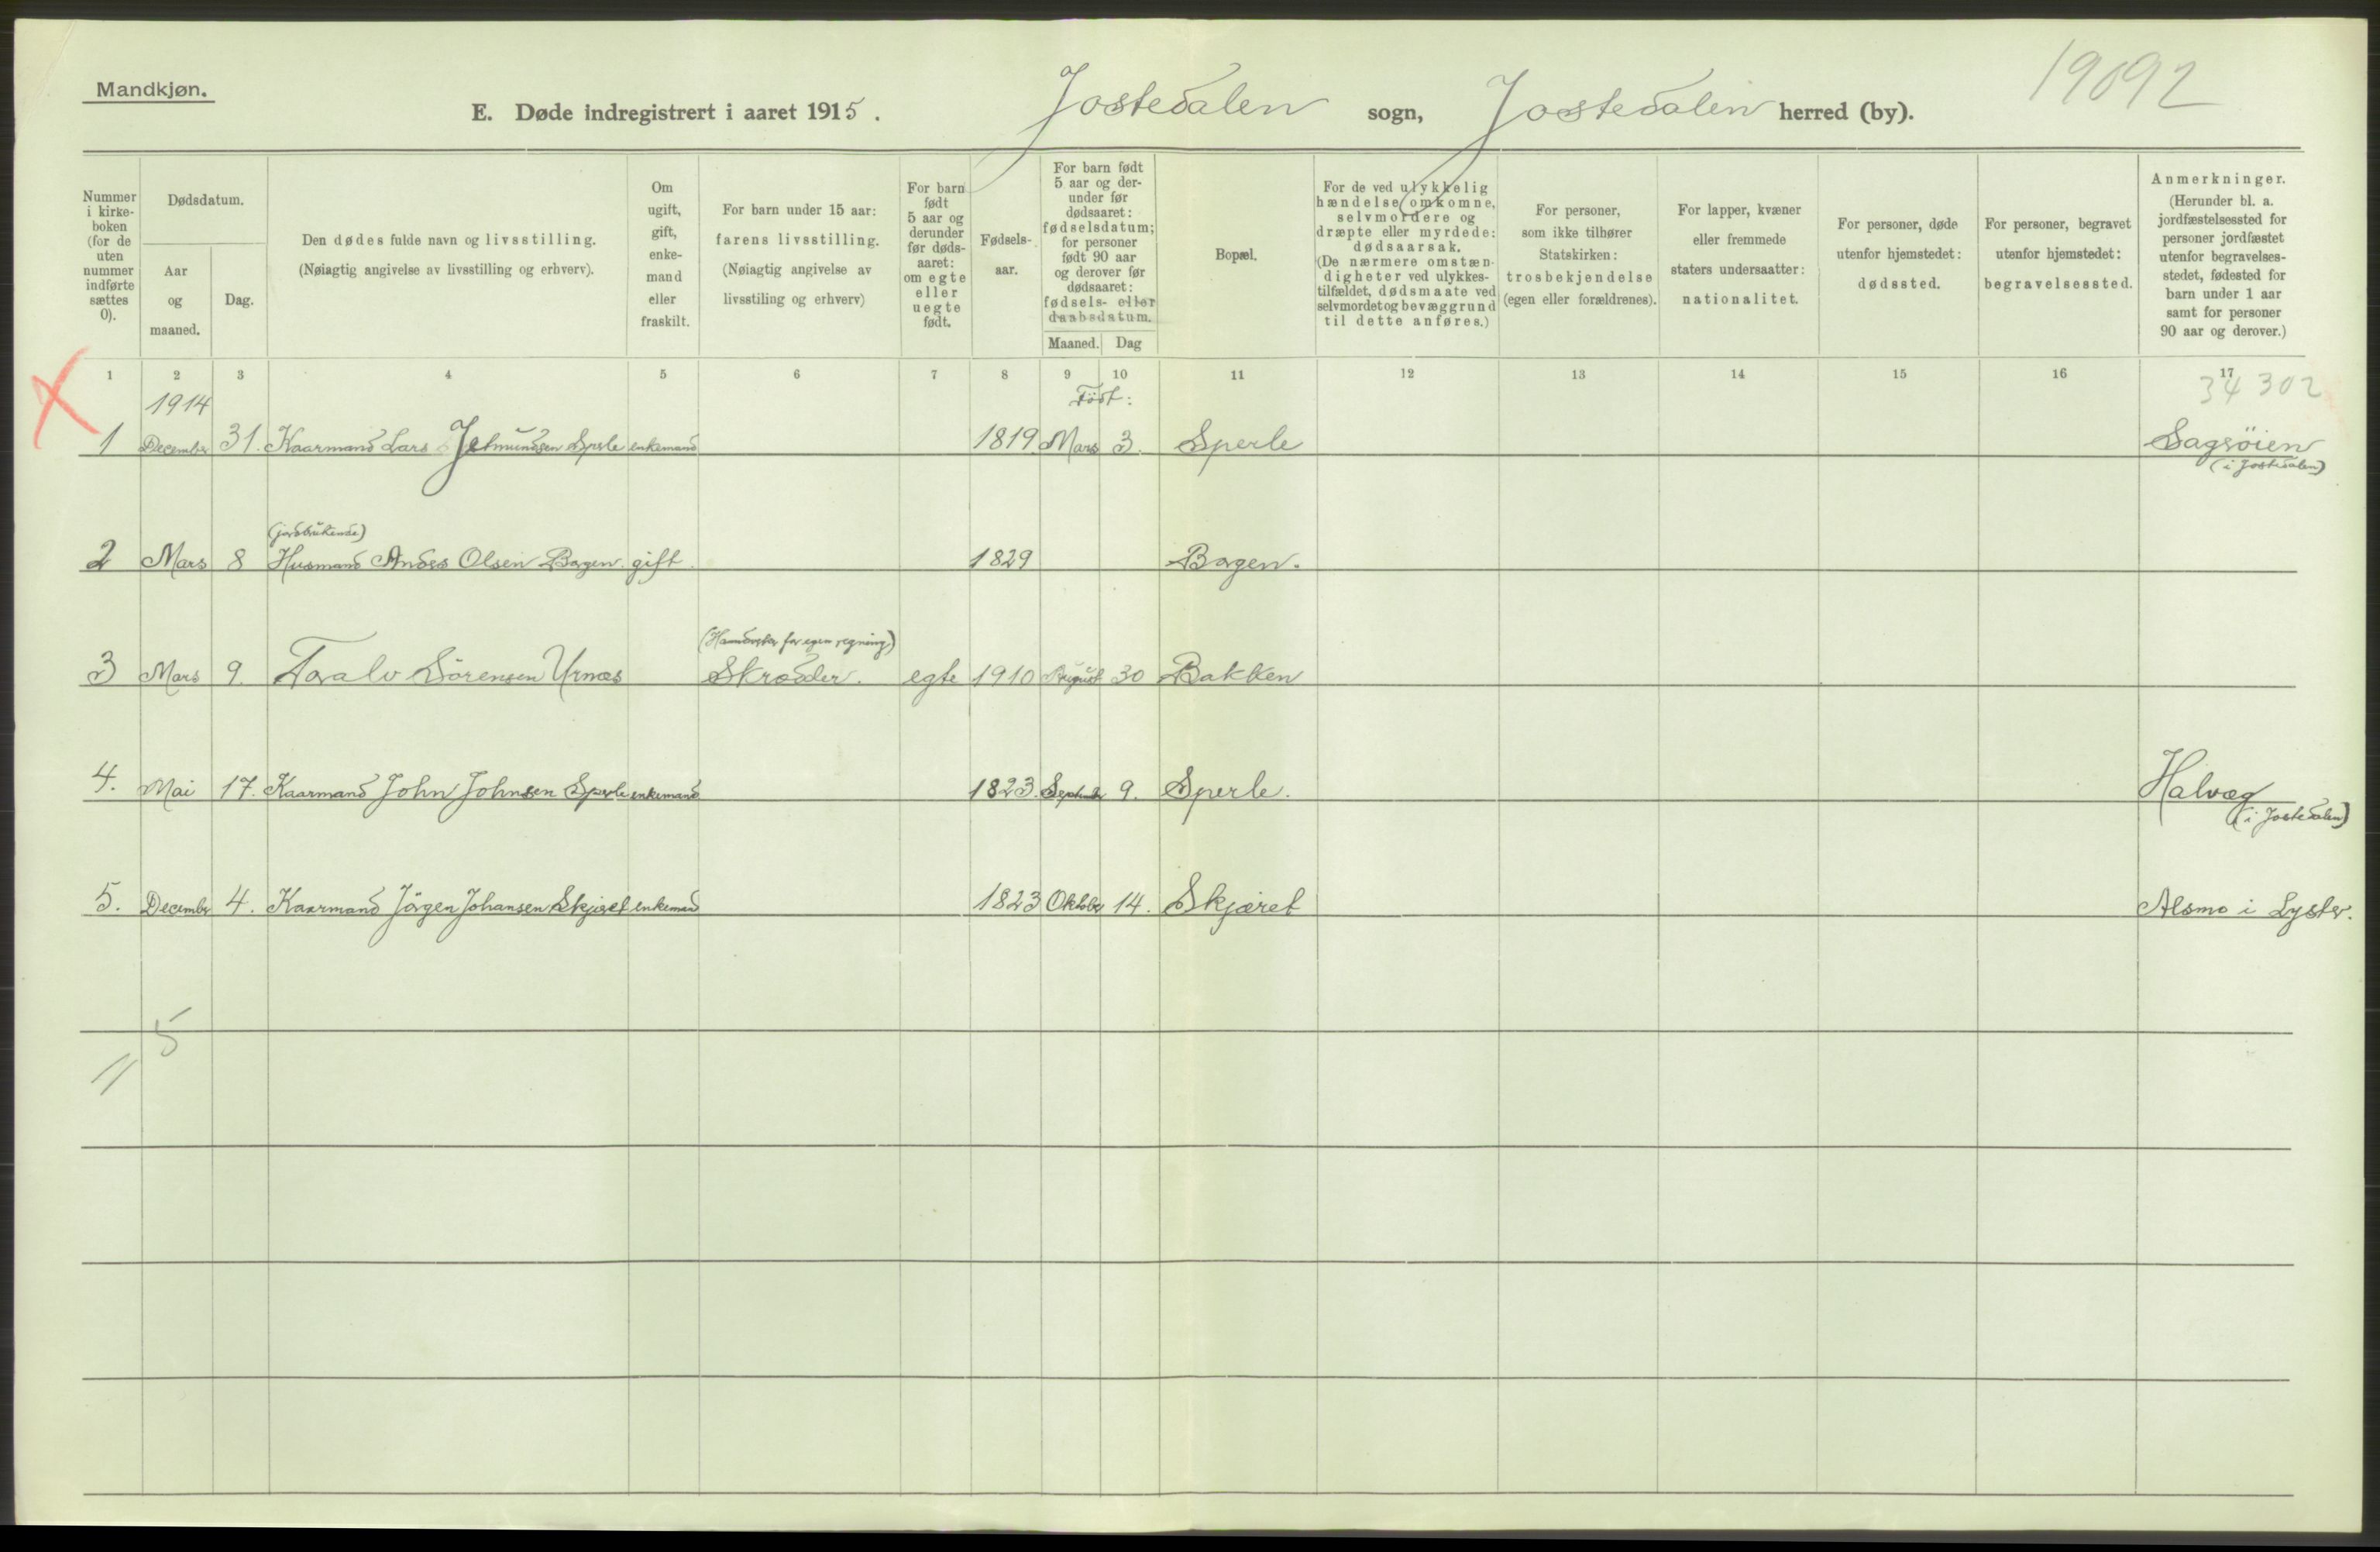 Mandkjøn.
E. Døde indregistrert i aaret 1915. Jostedalen sogn, Jostedalen herred (by).
19092
Nummer i kirke-boken (for de uten nummer indførte sættes 0).
Dødsdatum.
Aar og maaned.
Dag.
Den dødes fulde navn og livsstilling. (Nøiagtig angivelse av livsstilling og erhverv).
Om ugift, gift, enke-mand eller fraskilt.
For barn under 15 aar: farens livsstilling. (Nøiagtig angivelse av livsstiling og erhverv)
For barn født 5 aar og derunder før døds-aaret: om egte eller uegte født.
Fødsels-aar.
For barn født 5 aar og der-under før dødsaaret: fødselsdatum; for personer født 90 aar og derover før dødsaaret: fødsels- eller daabsdatum.
Maaned. Dag
Bopæl.
For de ved ulykkelig hændelse omkomne, selvmordere og dræpte eller myrdede: dødsaarsak. (De nærmere omstæn-digheter ved ulykkes-tilfældet, dødsmaate ved selvmordet og bevæggrund til dette anføres.)
For personer, som ikke tilhører Statskirken: trosbekjendelse (egen eller forældrenes).
For lapper, kvæner eller fremmede staters undersaatter: nationalitet.
For personer, døde utenfor hjemstedet: dødssted.
For personer, begravet utenfor hjemstedet: begravelsessted.
Anmerkninger. (Herunder bl. a. jordfæstelsessted for personer jordfæstet utenfor begravelses-stedet, fødested for barn under 1 aar samt for personer 90 aar og derover.)
1 2 3 4 5 6 7 8 9 10 11 12 13 14 15 16 17
1914 Föst: 34302
1 December 31. Kaarmand Lars Jetmundsen Sperle enkemand 1819 Mars 3. Sperle Sagröien
(i Jostedalen)
(jordbrukende)
2 Mars 8 Husmand Anders Olsen Bagen. gift. 1829 Bagen.
(Haandverker for egen regning)
3 Mars 9. Toralv Sörensen Urnæs Skrædder. egte 1910 August 30 Bakken
4. Mai 17. Kaarmand John Johnsen Sperle enkemand 1823. September 9. Sperle. Halvæg
(i Jostedalen)
5. December 4. Kaarmand Jörgen Johansen Skjæret enkemand 1823 Oktober 14. Skjæret Alsmo i Lyster.
5